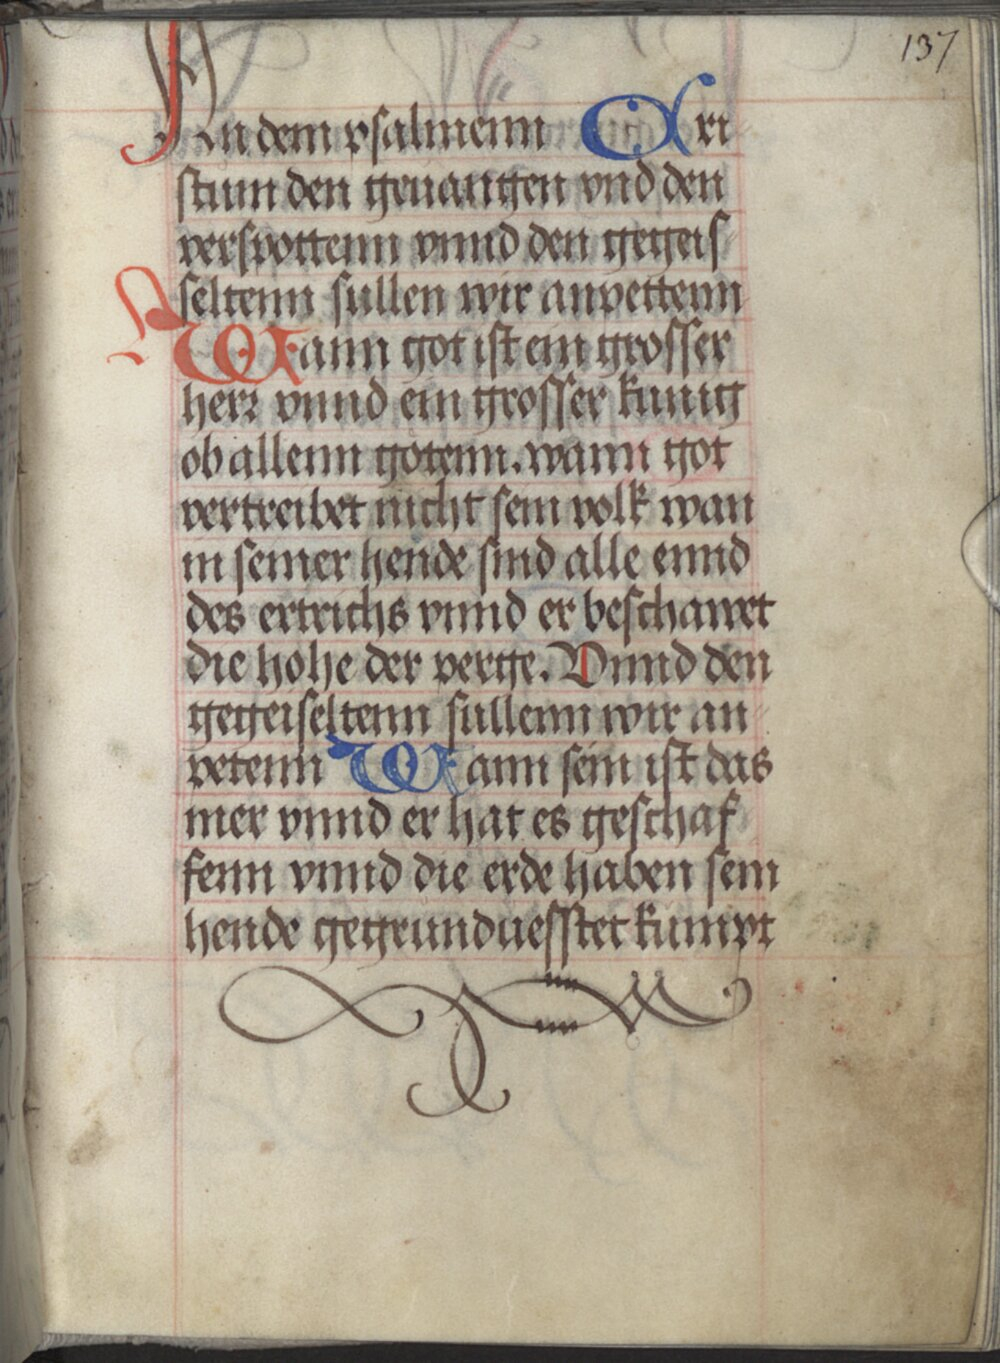 137
In dem psalmenn Cri
stum den geuangen vnd den
verspottenn vnnd den gegeis
seltenn sullen wir anpettenn
Wann got ist ein grosser
herr vnnd ein grosser kunig
ob allenn gotenn. wann got
vertreibet nicht sein volk wan
in seiner hende sind alle ennd
des ertrichs vnnd er beschawet
die hohe der perge. Vnnd den
gegeiseltenn sullenn wir an
petenn Wann sein ist das
mer vnnd er hat es geschaf
fenn vnnd die erde haben sein
hende gegrunduesstet kumpt